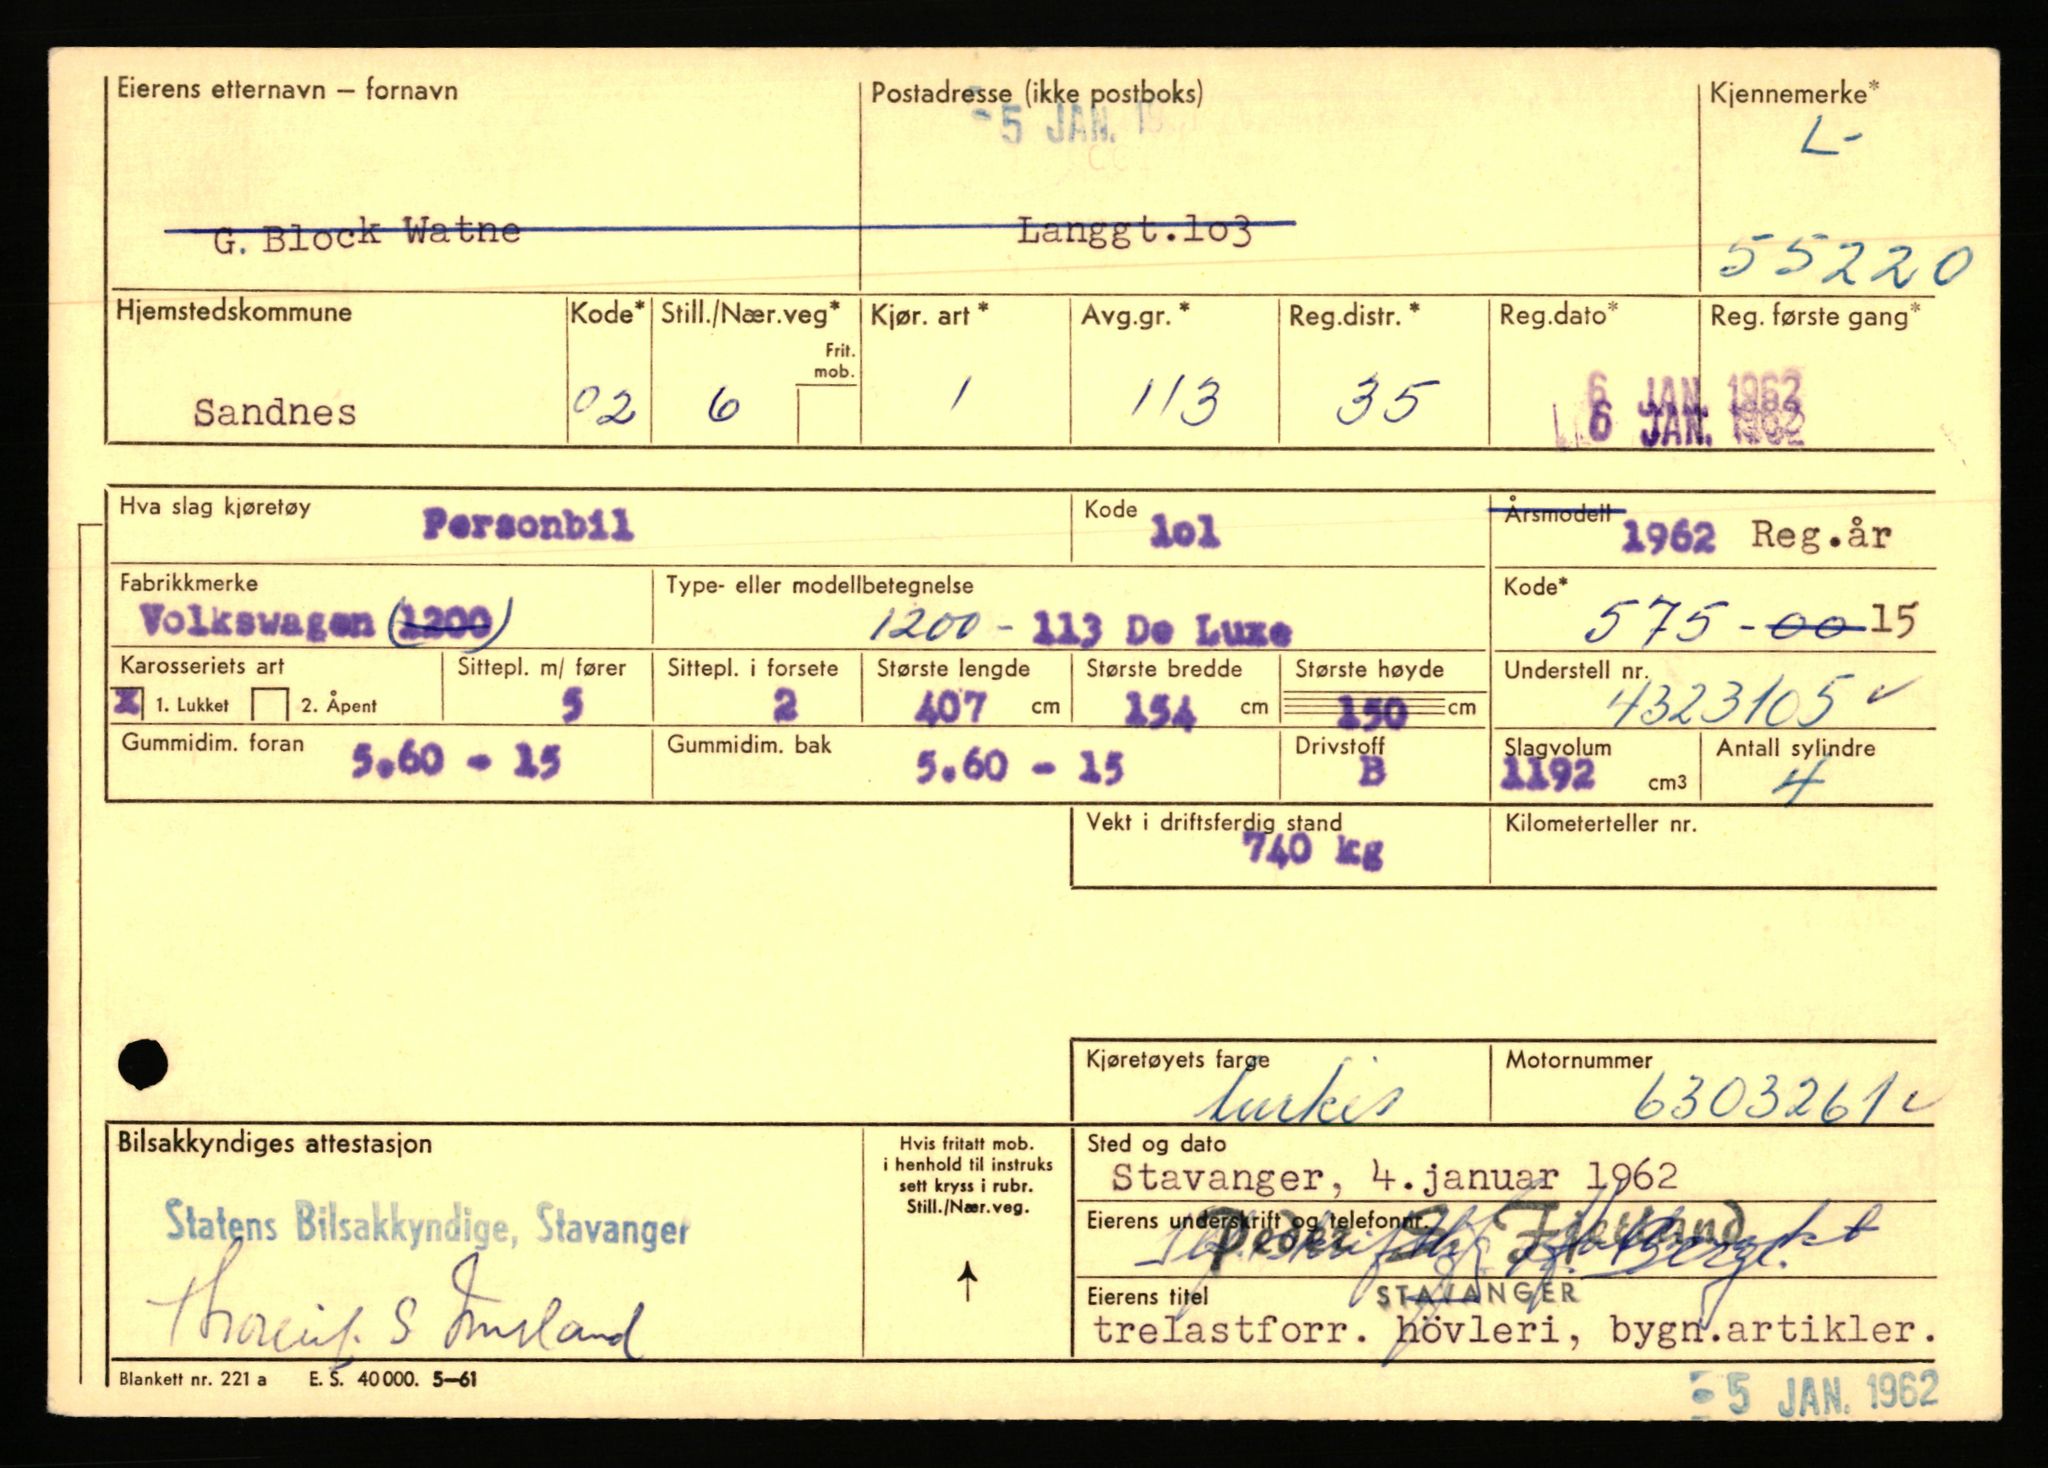 Eierens etternavn – fornavn
Postadresse (ikke postboks)
Kjennemerke*
5 JAN.
L-
G. Block Watne
Langgt.lo3
55220
Hjemstedskommune
Kode*
Still./Nær.veg*
Frit. mob.
Kjør. art *
Avg.gr. *
Reg.distr. *
Reg.dato*
Reg. første gang*
Sandnes
02
6
1
113
35
6 JAN. 1962
6 JAN. 1962
Hva slag kjøretøy
Personbil
Kode
lol
Årsmodell
1962 Reg.år
Fabrikkmerke
Volkswagen (1200)
Type- eller modellbetegnelse
1200 - 113 De Luxe
Kode*
575 - 00 15
Karosseriets art
X 1. Lukket 2. Åpent
Sittepl. m/ fører
5
Sittepl. i forsete
2
Største lengde
407 cm
Største bredde
154 cm
Største høyde
150 cm
Understell nr.
4323105 ✓
Gummidim. foran
5.60 - 15
Gummidim. bak
5.60 - 15
Drivstoff
B
Slagvolum
1192 cm3
Antall sylindre
4
Vekt i driftsferdig stand
740 kg
Kilometerteller nr.
Kjøretøyets farge
turkis
Motornummer
6303261 ✓
Bilsakkyndiges attestasjon
Statens Bilsakkyndige, Stavanger
Hvis fritatt mob.
i henhold til instruks
sett kryss i rubr.
Still./Nær.veg.
Sted og dato
Stavanger, 4.januar 1962
Eierens underskrift og telefonnr.
Peder S. Fjetland
STAVANGER
Eierens titel
trelastforr. hövleri, bygn.artikler.
Blankett nr. 221 a E. S. 40 000. 5–61
5 JAN. 1962